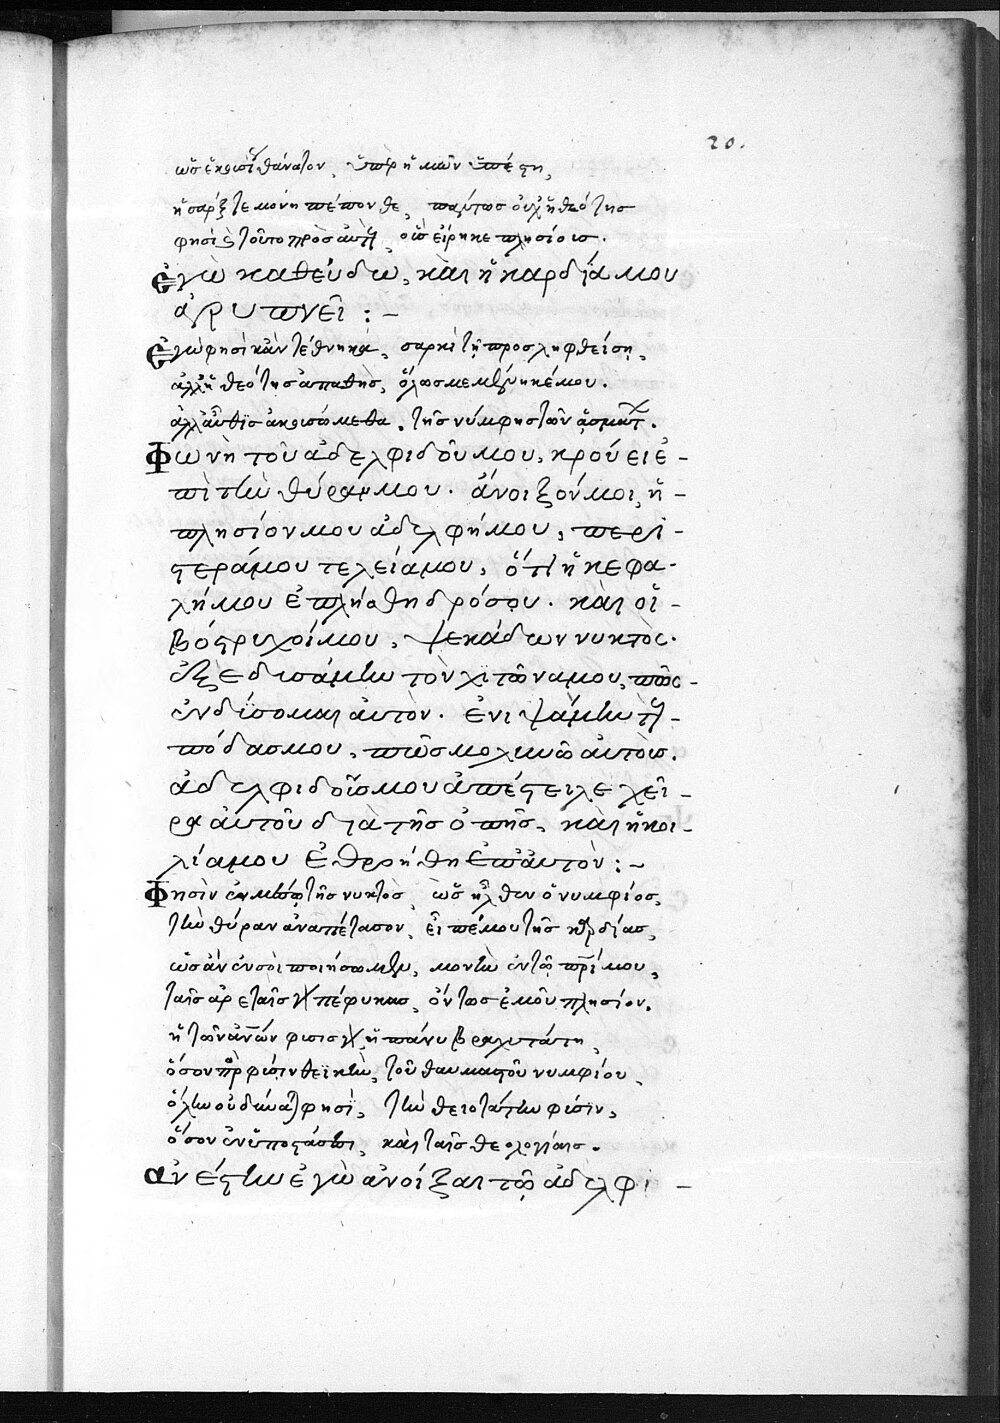 20.
ὡς ἑκουσίου θάνατον, ὑπὲρ ἡμῶν ὑπέστη,
ἡ σάρξ τε μόνη πέπονθε, πάντως οὐχ ἡ θεότης
φησὶ τοῦτο πρὸς αὐτὴν, οἷς εἴρηκε πλησίοις.
Ἐγὼ καθεύδω, καὶ ἡ καρδία μου
ἀγρυπνεῖ :-
Ἐγώ φησὶ κἂν τέθνηκα, σαρκὶ τῇ προσληφθείσῃ,
ἀλλ' ἡ θεότης ἀπαθὴς, ὅλως μεμένηκέ μου.
ἀλλ' αὖθις ἀκουσώμεθα, τῆς νύμφης τῶν ᾀσμάτων.
Φωνὴ τοῦ ἀδελφιδοῦ μου, κρούει ἐ-
πὶ τὴν θύραν μου. ἄνοιξόν μοι, ἡ -
πλησίον μου ἀδελφή μου, περι -
στερά μου τελεία μου, ὅτι ἡ κεφα-
λή μου ἐπλήσθη δρόσου. καὶ οἱ -
βόστρυχοί μου, ψεκάδων νυκτός.
ἐξεδυσάμην τὸν χιτῶνα μου, πῶς -
ἐνδύσομαι αὐτόν. ἐνιψάμην τοὺς -
πόδας μου, πῶς μολυνῶ αὐτούς.
ἀδελφιδοῦς μου ἀπέστειλε χεῖ -
ρα αὐτοῦ διὰ τῆς ὀπῆς, καὶ ἡ κοι -
λία μου ἐθροήθη ἐπ' αὐτὸν :-
Φησὶν ἐν μέσῳ τῆς νυκτὸς, ὡς ἦλθεν ὁ νυμφίος,
τὴν θύραν ἀναπέτασον, εἶπέ μου τῆς καρδίας,
ὡς ἂν ἐν σοὶ ποιήσωμεν, μονὴν ἐν τῷ πατρί μου,
ταῖς ἀρεταῖς γὰρ πέφυκας, ὄντως ἐμοῦ πλησίον.
ἡ τῶν ἀνθρώπων φύσις γὰρ, ἡ πάνυ βραχυτάτη,
ὅσον πρὸς φύσιν θεϊκὴν, τοῦ θαυμαστοῦ νυμφίου,
ὅλην οὐ δύναται φησὶ, τὴν θειοτάτην φύσιν,
ὅσον ἐν ὑποστάσει, καὶ ταῖς θεολογίαις.
ἀνέστην ἐγὼ ἀνοίξαι τῷ ἀδελφι -